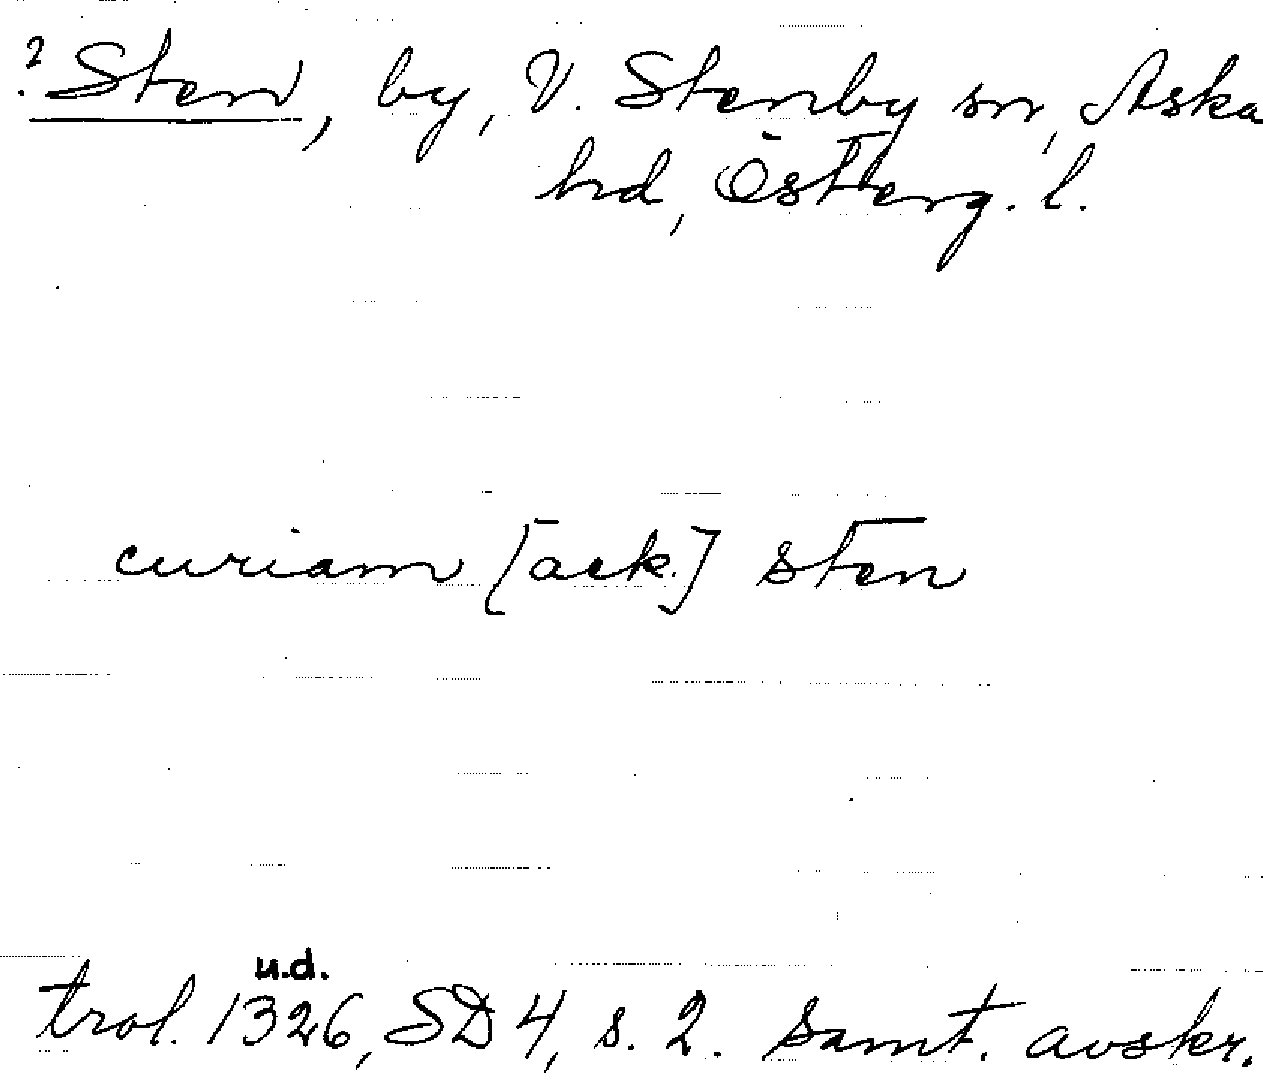 ? Sten, by, V. Stenby sn, Aska
hd, Österg. l.
curiam [ack.] sten
u.d.
trol. 1326, SD 4, s. 2. Samt. avskr.